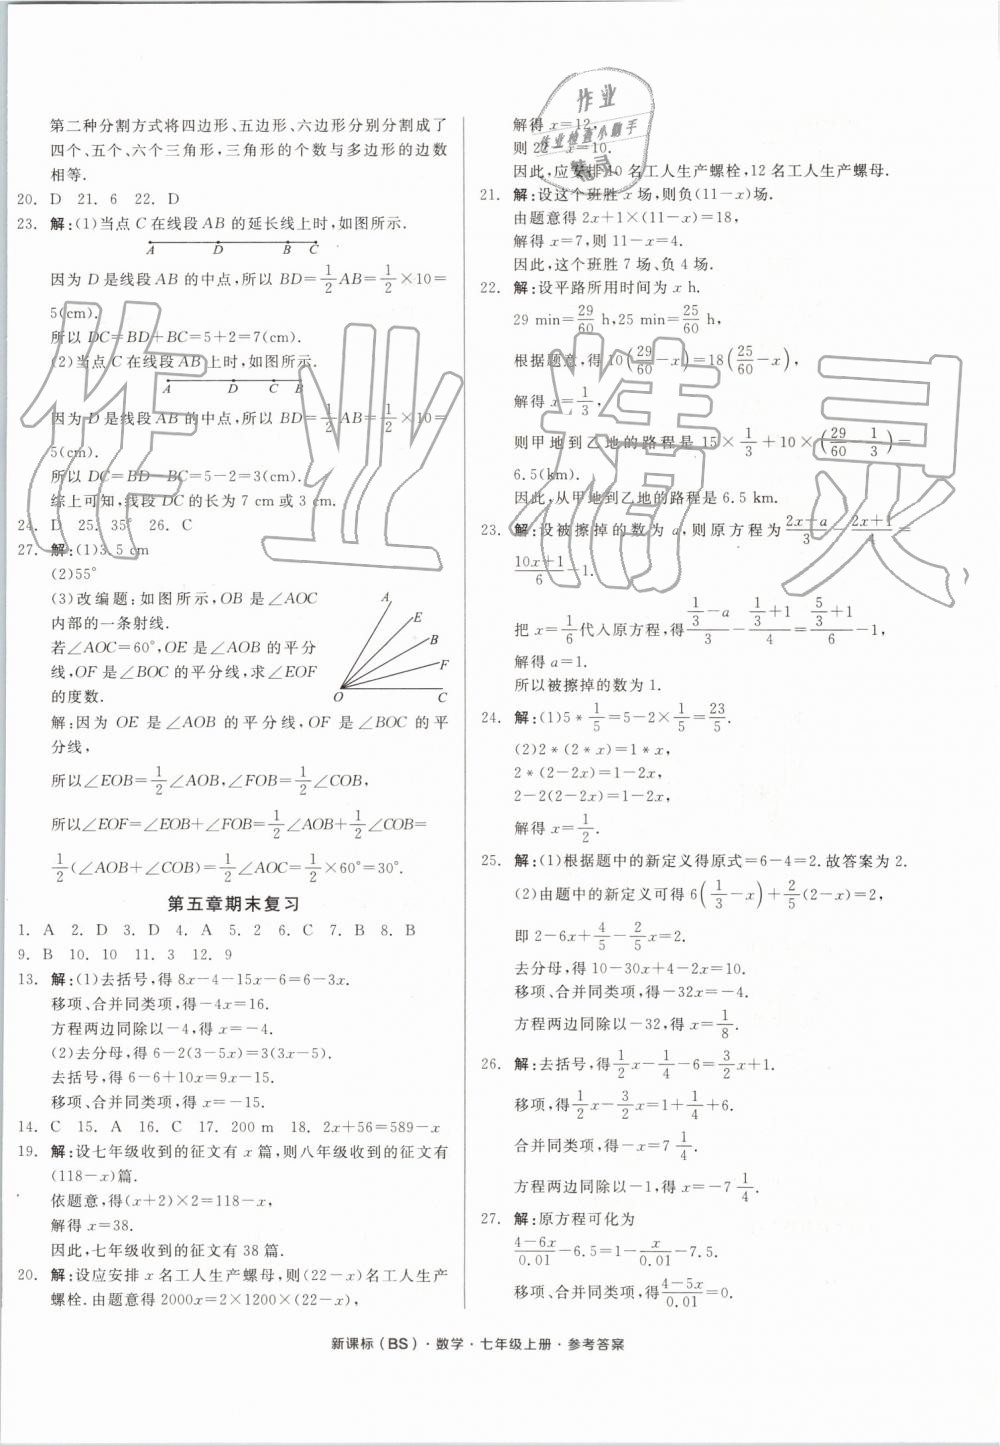 第二种分割方式将四边形、五边形、六边形分别分割成了
四个、五个、六个三角形,三角形的个数与多边形的边数
相等.
20. D 21. 6 22. D
23. 解:(1)当点 C 在线段 AB 的延长线上时,如图所示.
A D B C
因为 D 是线段 AB 的中点,所以 BD=1/2AB=1/2×10=
5(cm).
所以 DC=BD+BC=5+2=7(cm).
(2)当点 C 在线段 AB 上时,如图所示.
A D C B
因为 D 是线段 AB 的中点,所以 BD=1/2AB=1/2×10=
5(cm).
所以 DC=BD-BC=5-2=3(cm).
综上可知,线段 DC 的长为 7 cm 或 3 cm.
24. D 25. 35° 26. C
27. 解:(1)3.5 cm
(2)55°
(3)改编题:如图所示,OB 是∠AOC
内部的一条射线.
若∠AOC=60°,OE 是∠AOB 的平分
线,OF 是∠BOC 的平分线,求∠EOF
的度数.
A
E
B
F
O C
解:因为 OE 是∠AOB 的平分线,OF 是∠BOC 的平
分线,
所以∠EOB=1/2∠AOB,∠FOB=1/2∠COB,
所以∠EOF=∠EOB+∠FOB=1/2∠AOB+1/2∠COB=
1/2(∠AOB+∠COB)=1/2∠AOC=1/2×60°=30°.
第五章期末复习
1. A 2. D 3. D 4. A 5. 2 6. C 7. B 8. B
9. B 10. 10 11. 3 12. 9
13. 解:(1)去括号,得 8x-4-15x-6=6-3x.
移项、合并同类项,得-4x=16.
方程两边同除以-4,得 x=-4.
(2)去分母,得 6-2(3-5x)=3(3x-5).
去括号,得 6-6+10x=9x-15.
移项、合并同类项,得 x=-15.
14. C 15. A 16. C 17. 200 m 18. 2x+56=589-x
19. 解:设七年级收到的征文有 x 篇,则八年级收到的征文有
(118-x)篇.
依题意,得(x+2)×2=118-x,
解得 x=38.
因此,七年级收到的征文有 38 篇.
20. 解:设应安排 x 名工人生产螺母,则(22-x)名工人生产
螺栓.由题意得 2000x=2×1200×(22-x),
解得 x=12.
则 22-x=10.
因此,应安排 10 名工人生产螺栓,12 名工人生产螺母.
21. 解:设这个班胜 x 场,则负(11-x)场.
由题意得 2x+1×(11-x)=18,
解得 x=7,则 11-x=4.
因此,这个班胜 7 场、负 4 场.
22. 解:设平路所用时间为 x h.
29 min=29/60 h,25 min=25/60 h,
根据题意,得 10(29/60-x)=18(25/60-x),
解得 x=1/3,
则甲地到乙地的路程是 15×1/3+10×(29/60-1/3)=
6.5(km).
因此,从甲地到乙地的路程是 6.5 km.
23. 解:设被擦掉的数为 a,则原方程为(2x-a)/3-(2x+1)/4=
(10x+1)/6-1.
把 x=1/6代入原方程,得(1/3-a)/3-(1/3+1)/4=(5/3+1)/6-1,
解得 a=1.
所以被擦掉的数为 1.
24. 解:(1)5*1/5=5-2×1/5=23/5.
(2)2*(2*x)=1*x,
2*(2-2x)=1-2x,
2-2(2-2x)=1-2x,
解得 x=1/2.
25. 解:(1)根据题中的新定义得原式=6-4=2.故答案为 2.
(2)由题中的新定义可得 6(1/3-x)+2/5(2-x)=2,
即 2-6x+4/5-2/5x=2.
去分母,得 10-30x+4-2x=10.
移项、合并同类项,得-32x=-4.
方程两边同除以-32,得 x=1/8.
26. 解:去括号,得1/2x-1/4-6=3/2x+1.
移项,得1/2x-3/2x=1+1/4+6.
合并同类项,得-x=7 1/4.
方程两边同除以-1,得 x=-7 1/4.
27. 解:原方程可化为
(4-6x)/0.01-6.5=1-x/0.01-7.5.
移项、合并同类项,得(4-5x)/0.01=0.
新课标(BS)·数学·七年级上册·参考答案
作业
作业检查小助手
精灵
作业精灵